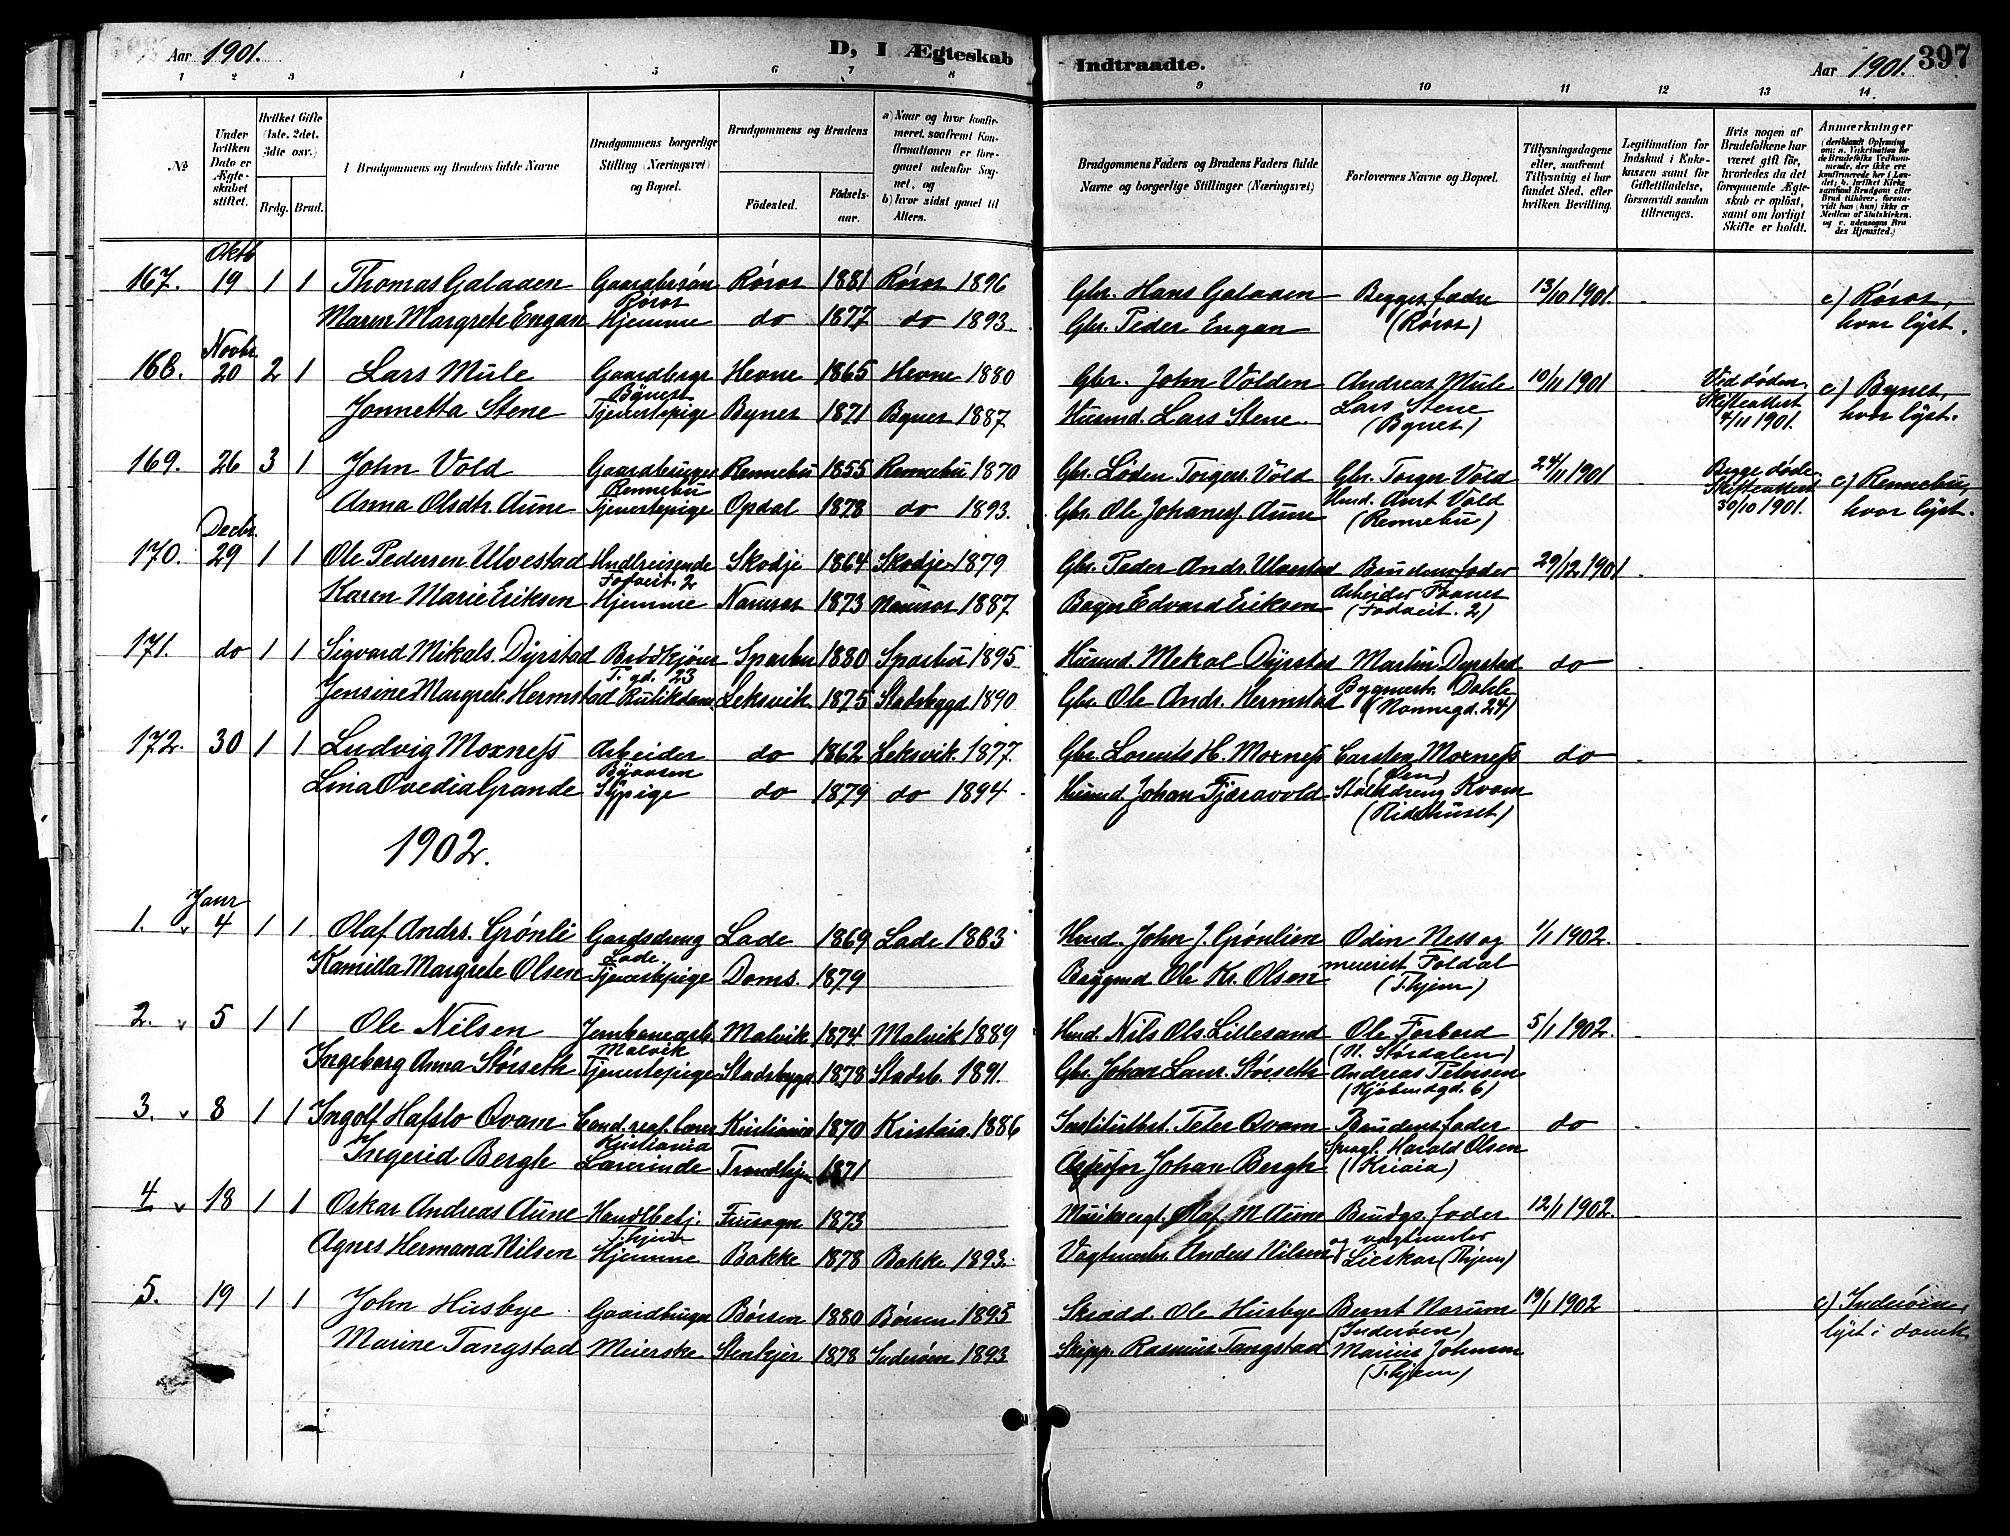 Aar 1901. D, I Ægteskab Indtraadte. Aar 1901. 397
1 2 3 4 5 6 7 8 9 10 11 12 13 14
№
Under hvilken Dato er Ægteskabet stiftet.
Hvilket Gifte (1ste, 2det, 3die osv.)
Brdg. Brud.
Brudgommens og Brudens fulde Navne
Brudgommens borgerlige Stilling (Næringsvei) og Bopæl.
Brudgommens og Brudens
Fødested. Fødselsaar.
a) Naar og hvor konfirmeret, saafremt Konfirmationen er foregaaet udenfor Sognet, og
b) hvor sidst gaaet til Alters.
Brudgommens Faders og Brudens Faders fulde Navne og borgerlige Stillinger (Næringsvei)
Forlovernes Navne og Bopæl.
Tillysningsdagene eller, saafremt Tillysning ei har fundet Sted, efter hvilken Bevilling.
Legitimation for Indskud i Enkekassen samt for Giftetilladelse, forsaavidt saadan tiltrænges.
Hvis nogen af Brudefolkene har været gift før, hvorledes da det foregaaende Ægteskab er opløst, samt om lovligt Skifte er holdt.
Anmærkninger
Oktb
167. 19 1 1 Thomas Galaaen Gaardbrsøn Røros 1881 Røros 1896 Gbr. Hans Galaaen Begges fædre 13/10 1901. c) Røros,
Røros
Maren Margrete Engan Hjemme do 1877 do 1893. Gbr. Peder Engan (Røros) hvor lyst.
Novbr.
168. 20 2 1 Lars Mule Gaardbrgr Hevne 1865 Hevne 1880 Gbr. John Volden Andreas Mule 10/11 1901 Ved døden. c) Bynes,
Bynest Lars Stene Skifteattest
Jonnetta Stene Tjenestepige Bynes 1871 Bynes 1887 Husmd. Lars Stene (Bynes) 4/11 1901. hvor lyst.
169. 26 3 1 John Vold Gaardbruger Rennebu 1855 Rennebu 1870 Gbr. Løden Torgers. Vold Gbr. Torger Vold 24/11 1901 Begge døde. c) Rennebu,
Rennebu Hmd. Arnt Vold Skifteattest
Anna Olsdtr. Aune Tjenestepige Opdal 1878 do 1893. Gbr. Ole Johanes. Aune (Rennebu) 30/10 1901. hvor lyst.
Decbr.
170. 29 1 1 Ole Pedersen Ulvestad Hndlreisende Skodje 1864 Skodje 1879 Gbr. Peder Andr. Ulvestad Brudens fader 29/12 1901
Karen Marie Eriksen Hjemme Namsos 1873 Namsos 1887 Bager Edvard Eriksen
171. do 1 1 Sigvard Mikals. Dyrstad Brødkjører Sparbu 1880 Sparbu 1895. Husmd. Mekal Dyrstad Martin Dyrstad do
T. gd. 23
Jensine Margrete Hermstad Butikdame Leksvik 1875 Stadsbygd 1890 Gbr. Ole Andr. Hermstad Bygmestr. Dahle
(Nonnegd. 24)
172. 30 1 1 Ludvig Moxness Arbeider do 1862 Leksvik. 1877. Gbr. Lorents H. Moxness Carsten Moxness do
Byaasen
Lina Ovedia Grande Sypige do 1879 do 1894 Husmd. Johan Fjæravold Stalddreng Kvam
(Ridehuset)
1902.
Janr
1. 4 1 1 Olaf Andrs. Grønli Gardsdreng Lade 1869 Lade 1883 Hmd. John J. Grønlien Odin Ness og 1/1 1902.
Lade meierist Foldal
Kamilla Margrete Olsen Tjenestepige Doms. 1879 Ole Kr. Olsen (T.hjem)
2. 5 1 1 Ole Nilsen Jernbanearb. Malvik 1874 Malvik 1889 Hmd. Nils Ols. Lillesand Ole Forbord 5/1 1902.
Malvik (N. Størdalen)
Ingeborg Anna Størseth Tjenestepige Stadsbygd 1878 Stadsb. 1891. Gbr. Johan Laur. Størseth Andreas Petersen
(Kjøbmdgd. 6)
3. 8 1 1 Ingolf Hafslo Qvam Cand. real. lærer Kristiania 1870 Kristaia. 1886 Institutbst. Peter Qvam Brudens fader do
Kristiania Harald Olsen
Ingerid Bergh Lærerinde Trondhjem 1871 Johan Bergh (Kriaia)
4. 18 1 1 Oskar Andreas Aune Handlbetj. Fruesogn 1873 Olaf M Aune Brudgs. fader 12/1 1902.
T.hjem og vagtmester
Agnes Hermana Nilsen Hjemme Bakke 1878 Bakke 1893. Vagtmester Anders Nilsen Lieskar (T.hjem)
5. 19 1 1 John Husbye Gaardbruger Børsen 1880 Børsen 1895 Skradd. Ole Husbye Bernt Norum 19/1 1902 c) Inderøen,
(Inderøen)
Marine Tangstad Meierske Stenkjer 1878 Inderøen 1893 Skipp. Rasmus Tangstad Marius Johnsen lyst i domk.
(T.hjem)